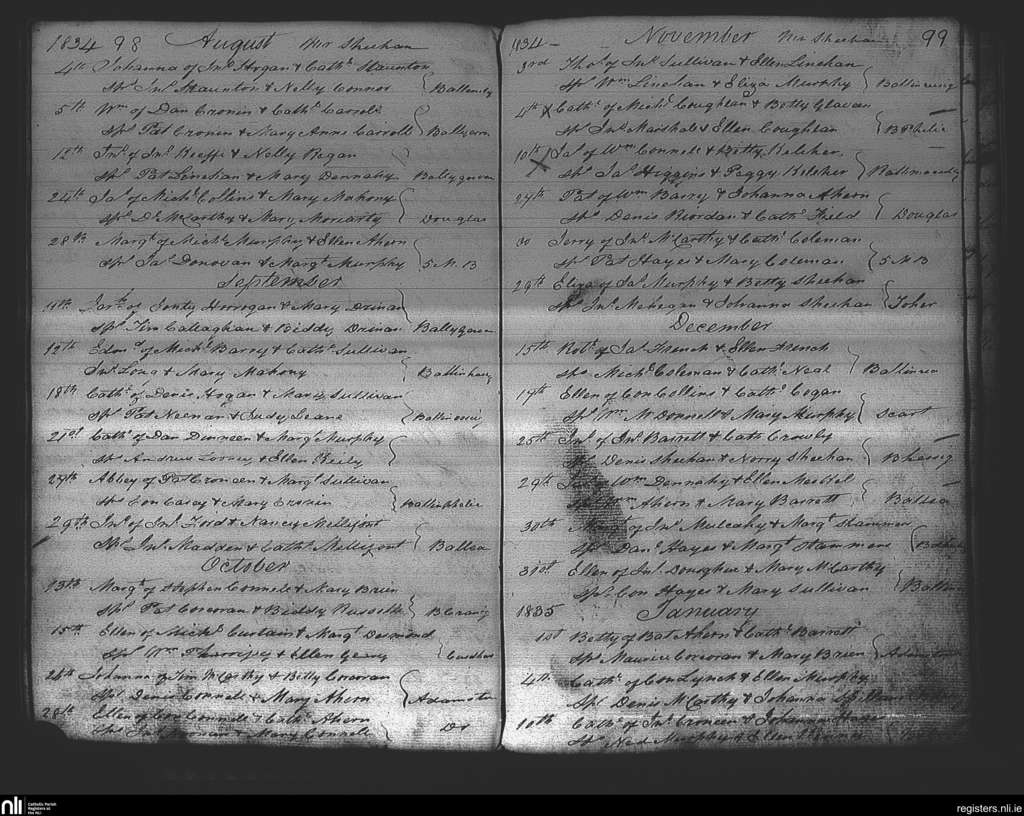 1834 98 August Wm Sheehan
4th Johanna of Jno. Hogan & Cathe. Staunton
Sps. Jno. Staunton & Nelly Connor
5th Wm of Dan Cronin & Cathe. Carroll
Sps. Pat Cronin & Mary Anne Carroll
12th Jno. of Jno. Keeffe & Nelly Regan
Sps. Pat Linehan & Mary Dennahy Ballygarvan
24th Jas. of Michl. Collins & Mary Mahony
Sps. Dl. McCarthy & Mary Moriarty Douglas
28th Margt. of Michl. Murphy & Ellen Ahern
Sps. Jas. Donovan & Margt. Murphy 5.M.B
September
of Horrogan & Mary Drinan
Sps. Tim Callaghan & Biddy Drinan Ballygarvan
12th Edmd. of Michl. Barry & Cathe. Sullivan
Jno. Long & Mary Mahony
18th Cathe. of Denis Hogan & Mary Sullivan
Sps. Pat Keenan & Judy Leane
21st Cathe. of Dan Dinneen & Margt. Murphy
Sps. Andrew Looney & Ellen Reily
27th Abbey of Pat Croneen & Margt. Sullivan
Sps. Con Casey & Mary Cronin Balliphelic
29th Jno. of Jno. Ford & Nancy Mellifont
Sps. Jno. Madden & Cathe. Mellifont Ballea
October
13th Margt. of Stephen Connell & Mary Brien
Sps. Pat Corcoran & Biddy Russell B Crany
15th Ellen of Michl. Curtain & Margt. Desmond
Sps. Wm. & Ellen Geary
26th Johanna of Tim McCarthy & Betty Corcoran
Sps. Denis Connell & Mary Ahern Adamstown
28th Ellen of Con Connell & Cathe. Ahern
Sps. Jno. & Mary Connell Do
1834 November Wm Sheehan 99
3rd Thos. of Jno. Sullivan & Ellen Linehan
Sps. Wm. Linehan & Eliza Murphy
4th X Cathe. of Michl. Coughlan & Betty Glavan
Sps. Jno. Marshal & Ellen Coughlan B Phelic
10th X Jas. of Wm. Connell & Betty Kelcher
Sps. Jas. Higgins & Peggy Kelcher
27th Pat of Wm Barry & Johanna Ahern
Sps. Denis Riordan & Cathe. Field Douglas
30 Jerry of Jno. McCarthy & Cathe. Coleman
Sps. Pat Hayes & Mary Coleman 5 M B
29th Eliza of Jas. Murphy & Betty Sheehan
Sps. Jno. Mehegan & Johanna Sheehan Toher
December
15th Robt. of Jas. French & Ellen French
Sps. Michl. Coleman & Cathe. Neal
17th Ellen of Con Collins & Cathe. Cogan
Sps. Wm. McDonnell & Mary Murphy Scart
25th Jno. of Jno. Barrett & Cath Crowly
Sps. Denis Sheehan & Norry Sheehan
29th Wm Dennahy & Ellen
Wm Ahern & Mary Barrett Ballea
30th Margt. of Jno. Mulcahy & Margt. Hammon
Sps. Danl. Hayes & Margt. Hammon
31st Ellen of Jno. Donoghue & Mary McCarthy
Sps. Con Hayes & Mary Sullivan
1835 January
1st Betty of Bat Ahern & Cathe. Barrett
Sps. Maurice Corcoran & Mary Brien Adamstown
4th Cathe. of Con Lynch & Ellen Murphy
Sps. Denis McCarthy & Johanna
10th Cathe. of Jno. Croneen & Johanna
Sps. Ned Murphy & Ellen
nli Catholic Parish Registers at the NLI
registers.nli.ie